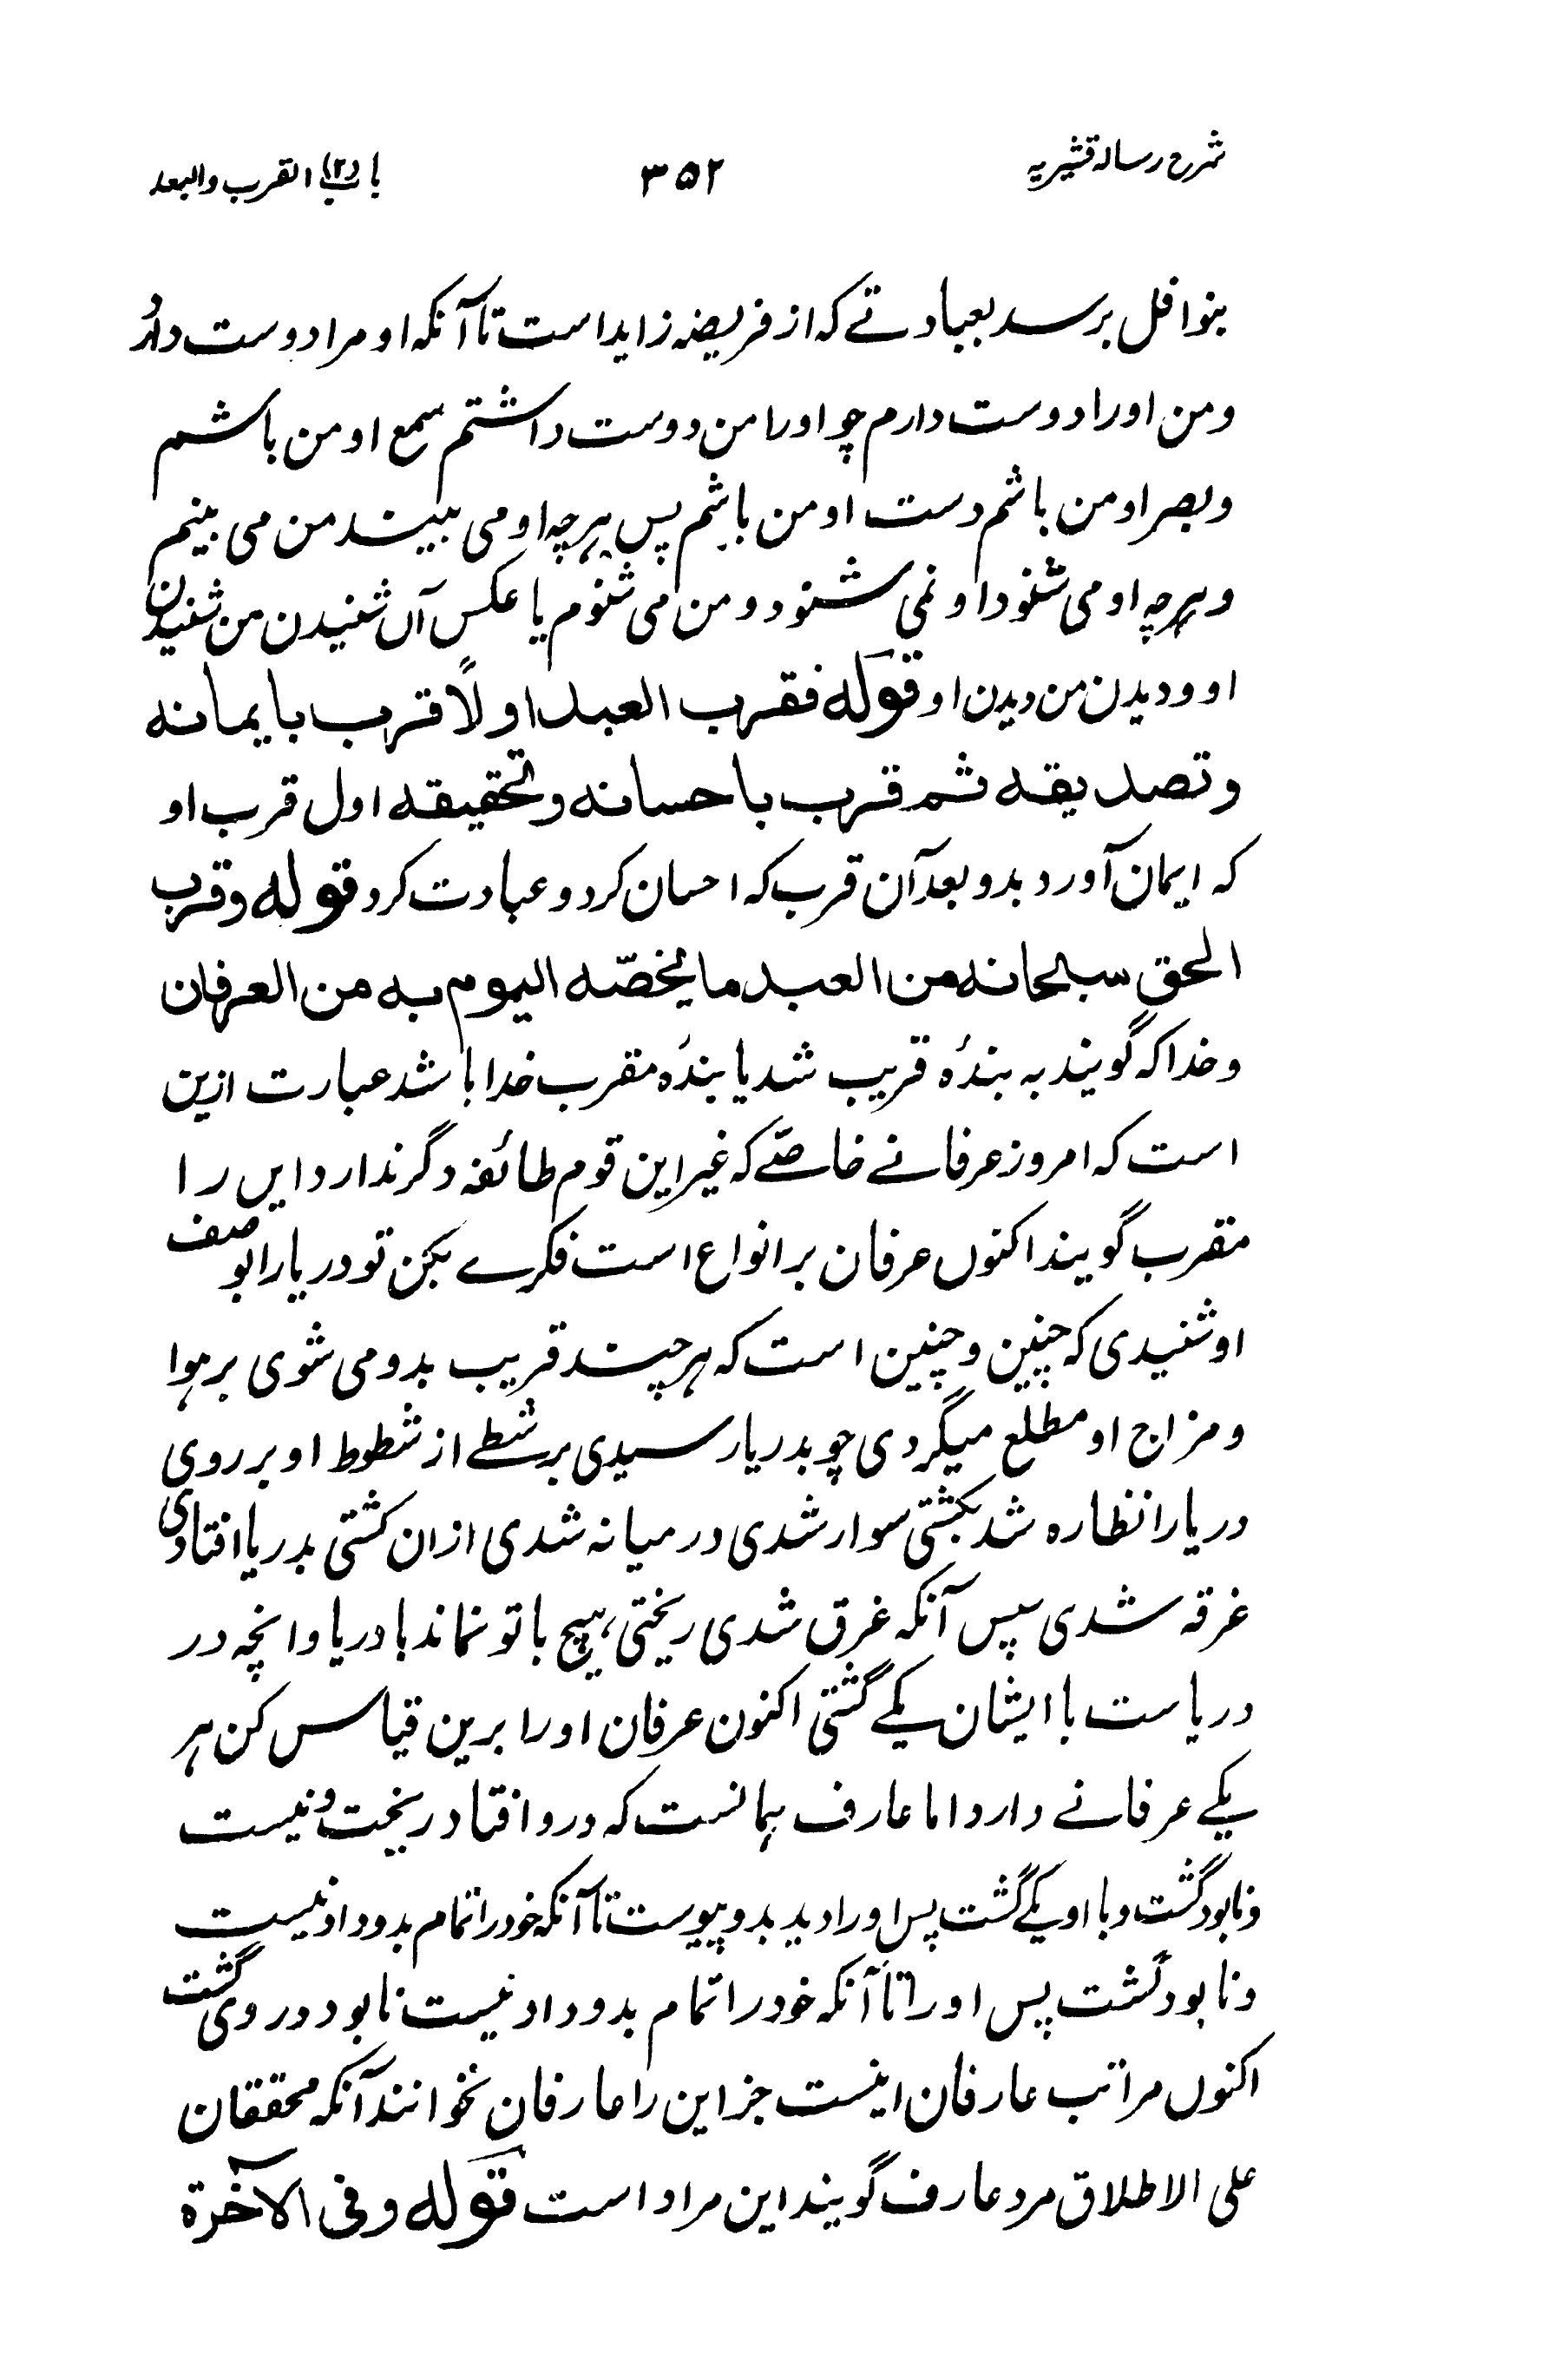 شرح رسالہ قشیریہ
۳۵۲
باب (۲) القرب والبعد
بنوافل برسد بعبادتے کہ از فریضہ زاید است تا آنکہ او مرا دوست دارد
و من اورا دوست دارم چو اورا من دوست داشتم سمع او من باشم
و بصر او من باشم دست او من باشم پس ہرچہ او می بیند من می بینم
و ہرچہ او می شنود او نمی شنود و من می شنوم یا عکس آں شنیدن من شنیدن
او و دیدن من دیدن او قولہ فقرب العبد اولًا قرب بایمانہ
و تصدیقہ ثم قرب باحسانہ و تحقیقہ اول قرب او
کہ ایمان آورد بدو بعد آن قرب کہ احسان کرد و عبادت کرد قولہ و قرب
الحق سبحانہ من العبد ما یخصّہ الیوم بہ من العرفان
و خدا کہ گویند بہ بندۂ قریب شد یا بندۂ مقرب خدا باشد عبارت ازین
است کہ امروز عرفانے خاصّے کہ غیر این قوم طائفہ دگر ندارد ایں را
مقرب گویند اکنوں عرفان بر انواع است فکرے بکن تو دریا را بوصف
او شنیدی کہ چنین و چنین است کہ ہر چند قریب بدو می شوی بر ہوا
و مزاج او مطلع میگردی چو بدریا رسیدی بر شطے از شطوط او بر روی
دریا را نظارہ شد بکشتی سوار شدی در میانہ شدی ازان کشتی بدریا افتادی
غرقہ شدی سپس آنکہ غرق شدی ریختی، ہیچ با تو نماند با دریا و انچہ در
دریاست با ایشان یکے گشتی اکنون عرفان اورا برین قیاس کن ہر
یکے عرفانے دارد اما عارف ہمانست کہ درو افتاد ریخت و نیست
و نابود گشت و با او یکے گشت پس اورا دید بدو پیوست تا آنکہ خود را تمام بدو داد نیست
و نابود گشت پس اورا تا آنکہ خود را تمام بدو داد نیست نابود در وی گشت
اکنوں مراتب عارفان اینست جز این را عارفان نخوانند آنکہ محققان
علی الاطلاق مرد عارف گویند این مراد است قولہ و فی الآخرة